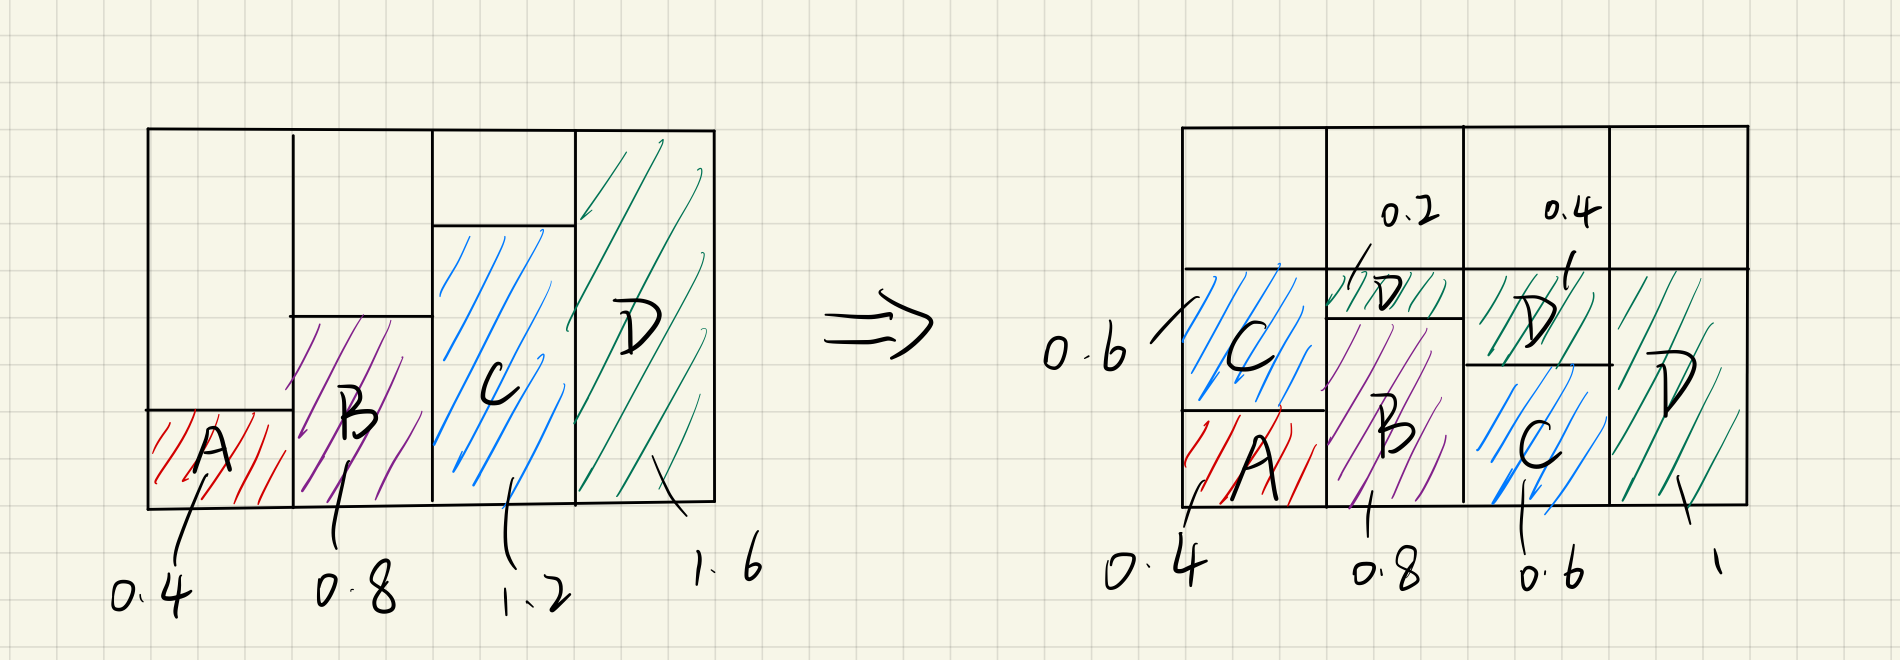 A
B
C
D
0.4
0.8
1.2
1.6
0.2
0.4
D
D
C
D
0.6
A
B
C
0.4
0.8
0.6
1